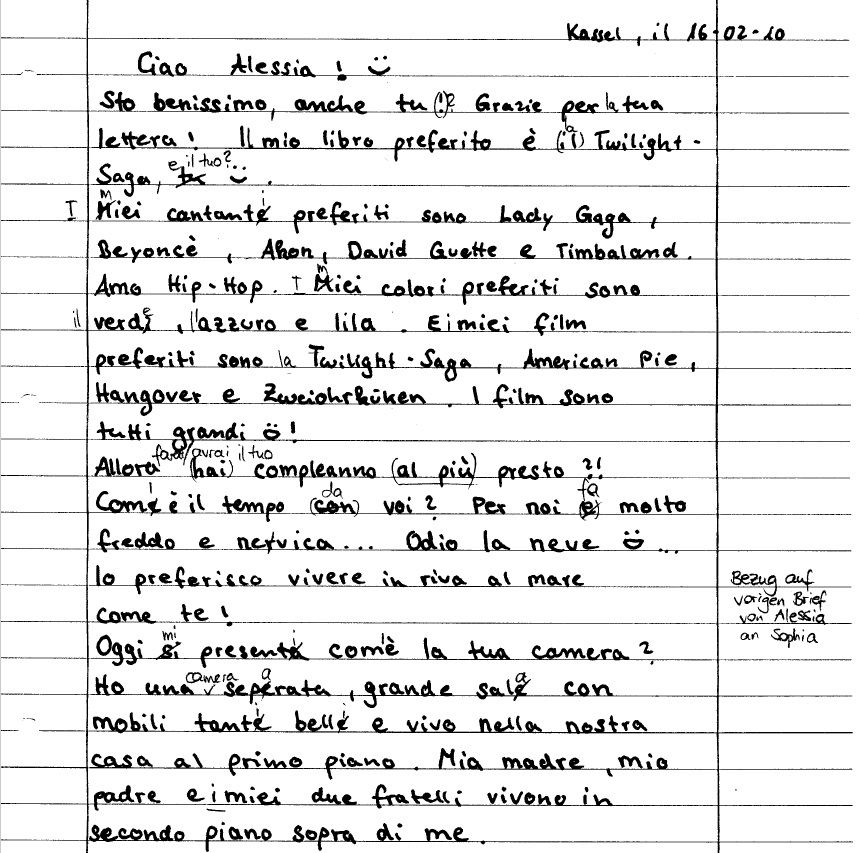 Kassel, il 16-02-10
Ciao Alessia!
Sto benissimo, anche tu (!)? Grazie per la tua
lettera! Il mio libro preferito è (il) la Twilight-
Saga, e il tuo?
I Miei m cantante i preferiti sono Lady Gaga,
Beyoncè, Akon, David Guette e Timbaland.
Amo Hip-Hop. I Miei m colori preferiti sono
il verdi e, l'azzuro e lila. E i miei film
preferiti sono la Twilight-Saga, American Pie,
Hangover e Zweiohrküken. I film sono
tutti grandi !
farai/avrai il tuo
Allora (hai) compleanno (al più) presto ?!
Come è il tempo (con) da voi? Per noi (e) fa molto
freddo e nervica... Odio la neve ...
Io preferisco vivere in riva al mare
come te!
Bezug auf
vorigen Brief
von Alessia
an Sophia
Oggi si mi presenta i com'è la tua camera?
Ho una camera seperata a, grande sale a con
mobili tante i belle i e vivo nella nostra
casa al primo piano. Mia madre, mio
padre e i miei due fratelli vivono in
secondo piano sopra di me.